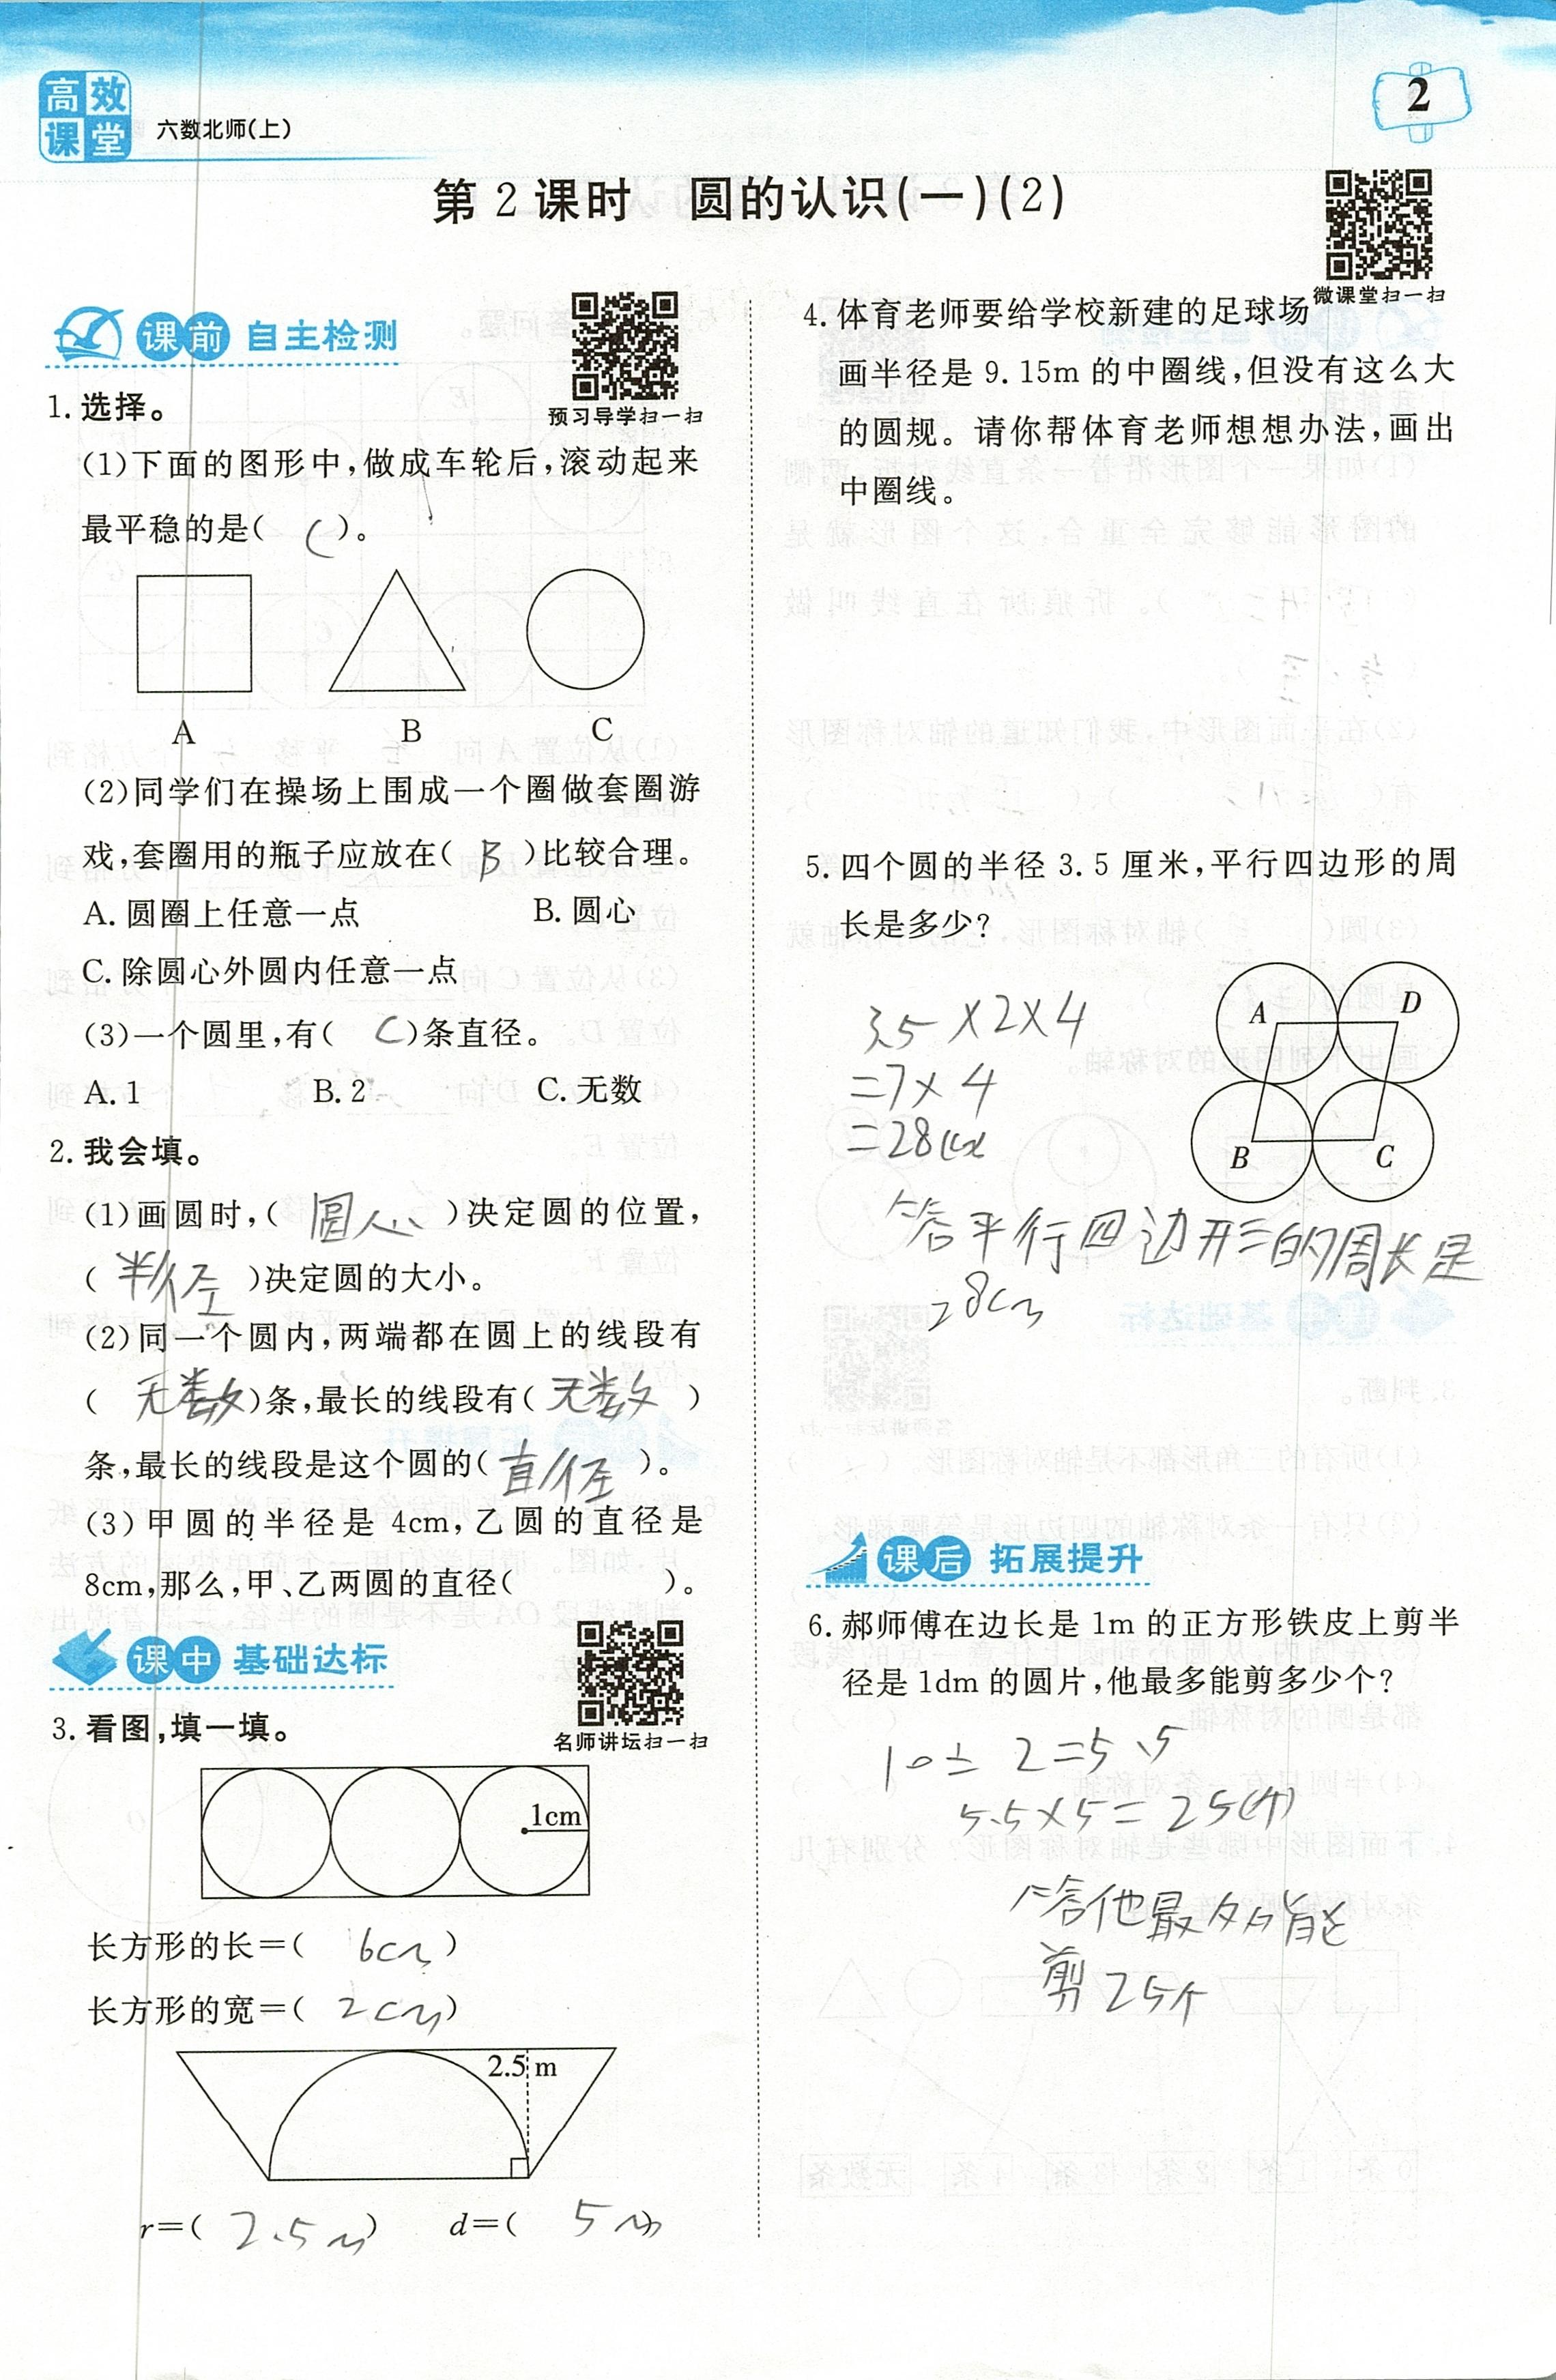 高效课堂
六数北师(上)
2
第2课时 圆的认识(一)(2)
微课堂扫一扫
课前 自主检测
预习导学扫一扫
1. 选择。
(1)下面的图形中,做成车轮后,滚动起来
最平稳的是( C )。
A B C
(2)同学们在操场上围成一个圈做套圈游
戏,套圈用的瓶子应放在( B )比较合理。
A. 圆圈上任意一点 B. 圆心
C. 除圆心外圆内任意一点
(3)一个圆里,有( C )条直径。
A. 1 B. 2 C. 无数
2. 我会填。
(1)画圆时,( 圆心 )决定圆的位置,
( 半径 )决定圆的大小。
(2)同一个圆内,两端都在圆上的线段有
( 无数 )条,最长的线段有( 无数 )
条,最长的线段是这个圆的( 直径 )。
(3)甲圆的半径是 4cm,乙圆的直径是
8cm,那么,甲、乙两圆的直径( )。
课中 基础达标
名师讲坛扫一扫
3. 看图,填一填。
1cm
长方形的长=( 6cm )
长方形的宽=( 2cm )
2.5 m
r=( 2.5m ) d=( 5m )
4. 体育老师要给学校新建的足球场
画半径是 9.15m 的中圈线,但没有这么大
的圆规。请你帮体育老师想想办法,画出
中圈线。
5. 四个圆的半径 3.5 厘米,平行四边形的周
长是多少?
A D
B C
3.5×2×4
=7×4
=28cm
答平行四边形的周长是
28cm
课后 拓展提升
6. 郝师傅在边长是 1m 的正方形铁皮上剪半
径是 1dm 的圆片,他最多能剪多少个?
10÷2=5、5
5.5×5=25(个)
答他最多能
剪25个